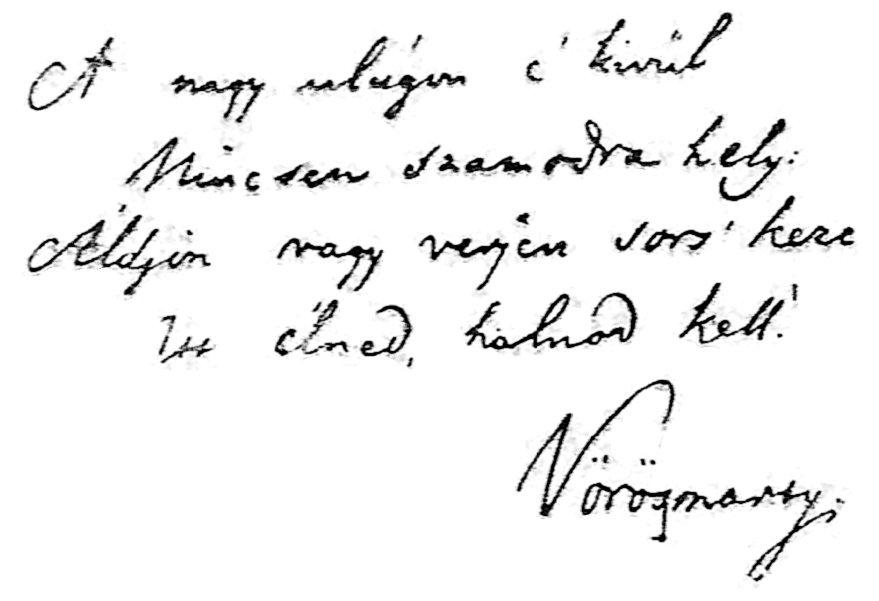 A nagy világon e' kivül
Nincsen számodra hely:
Áldjon vagy verjen sors' keze
Itt élned, halnod kell!
Vörösmarty.